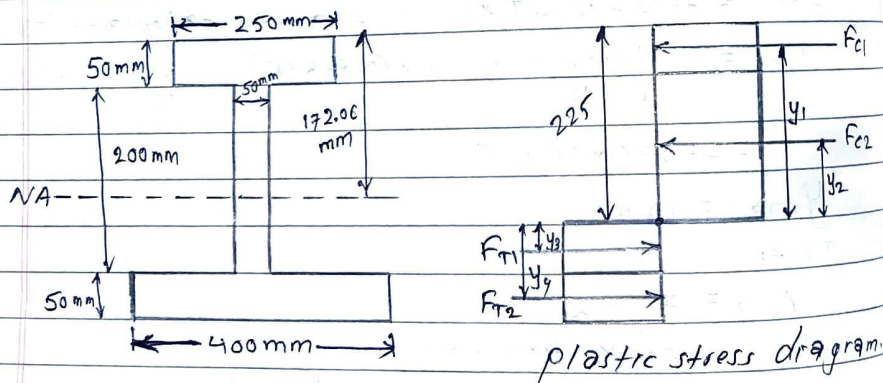 250mm
50mm
50mm
172.06
mm
200mm
NA
50mm
400mm
225
Fc1
y1
Fc2
y2
FT1
y3
y4
FT2
plastic stress diagram.